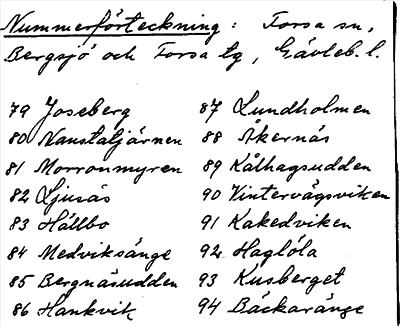 Nummerförteckning: Forsa sn,
Bergsjö och Forsa tg, Gävleb. l.
79 Joseberg
80 Naustatjärnen
81 Morronmyren
82 Ljusås
83 Hållbo
84 Medviksänge
85 Bergnäsudden
86 Hankvik
87 Lundholmen
88 Åkernäs
89 Kålhagsudden
90 Vintervägsviken
91 Kakedviken
92 Haglöla
93 Kusberget
94 Bäckaränge